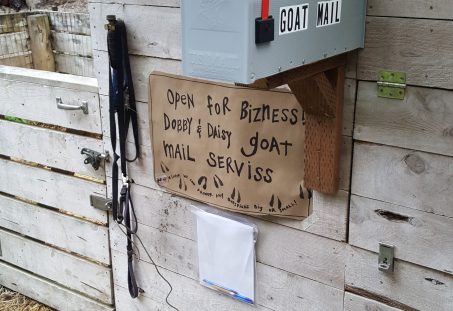 GOAT MAIL
Open for Bizness!
Dobby & Daisy goat
mail serviss